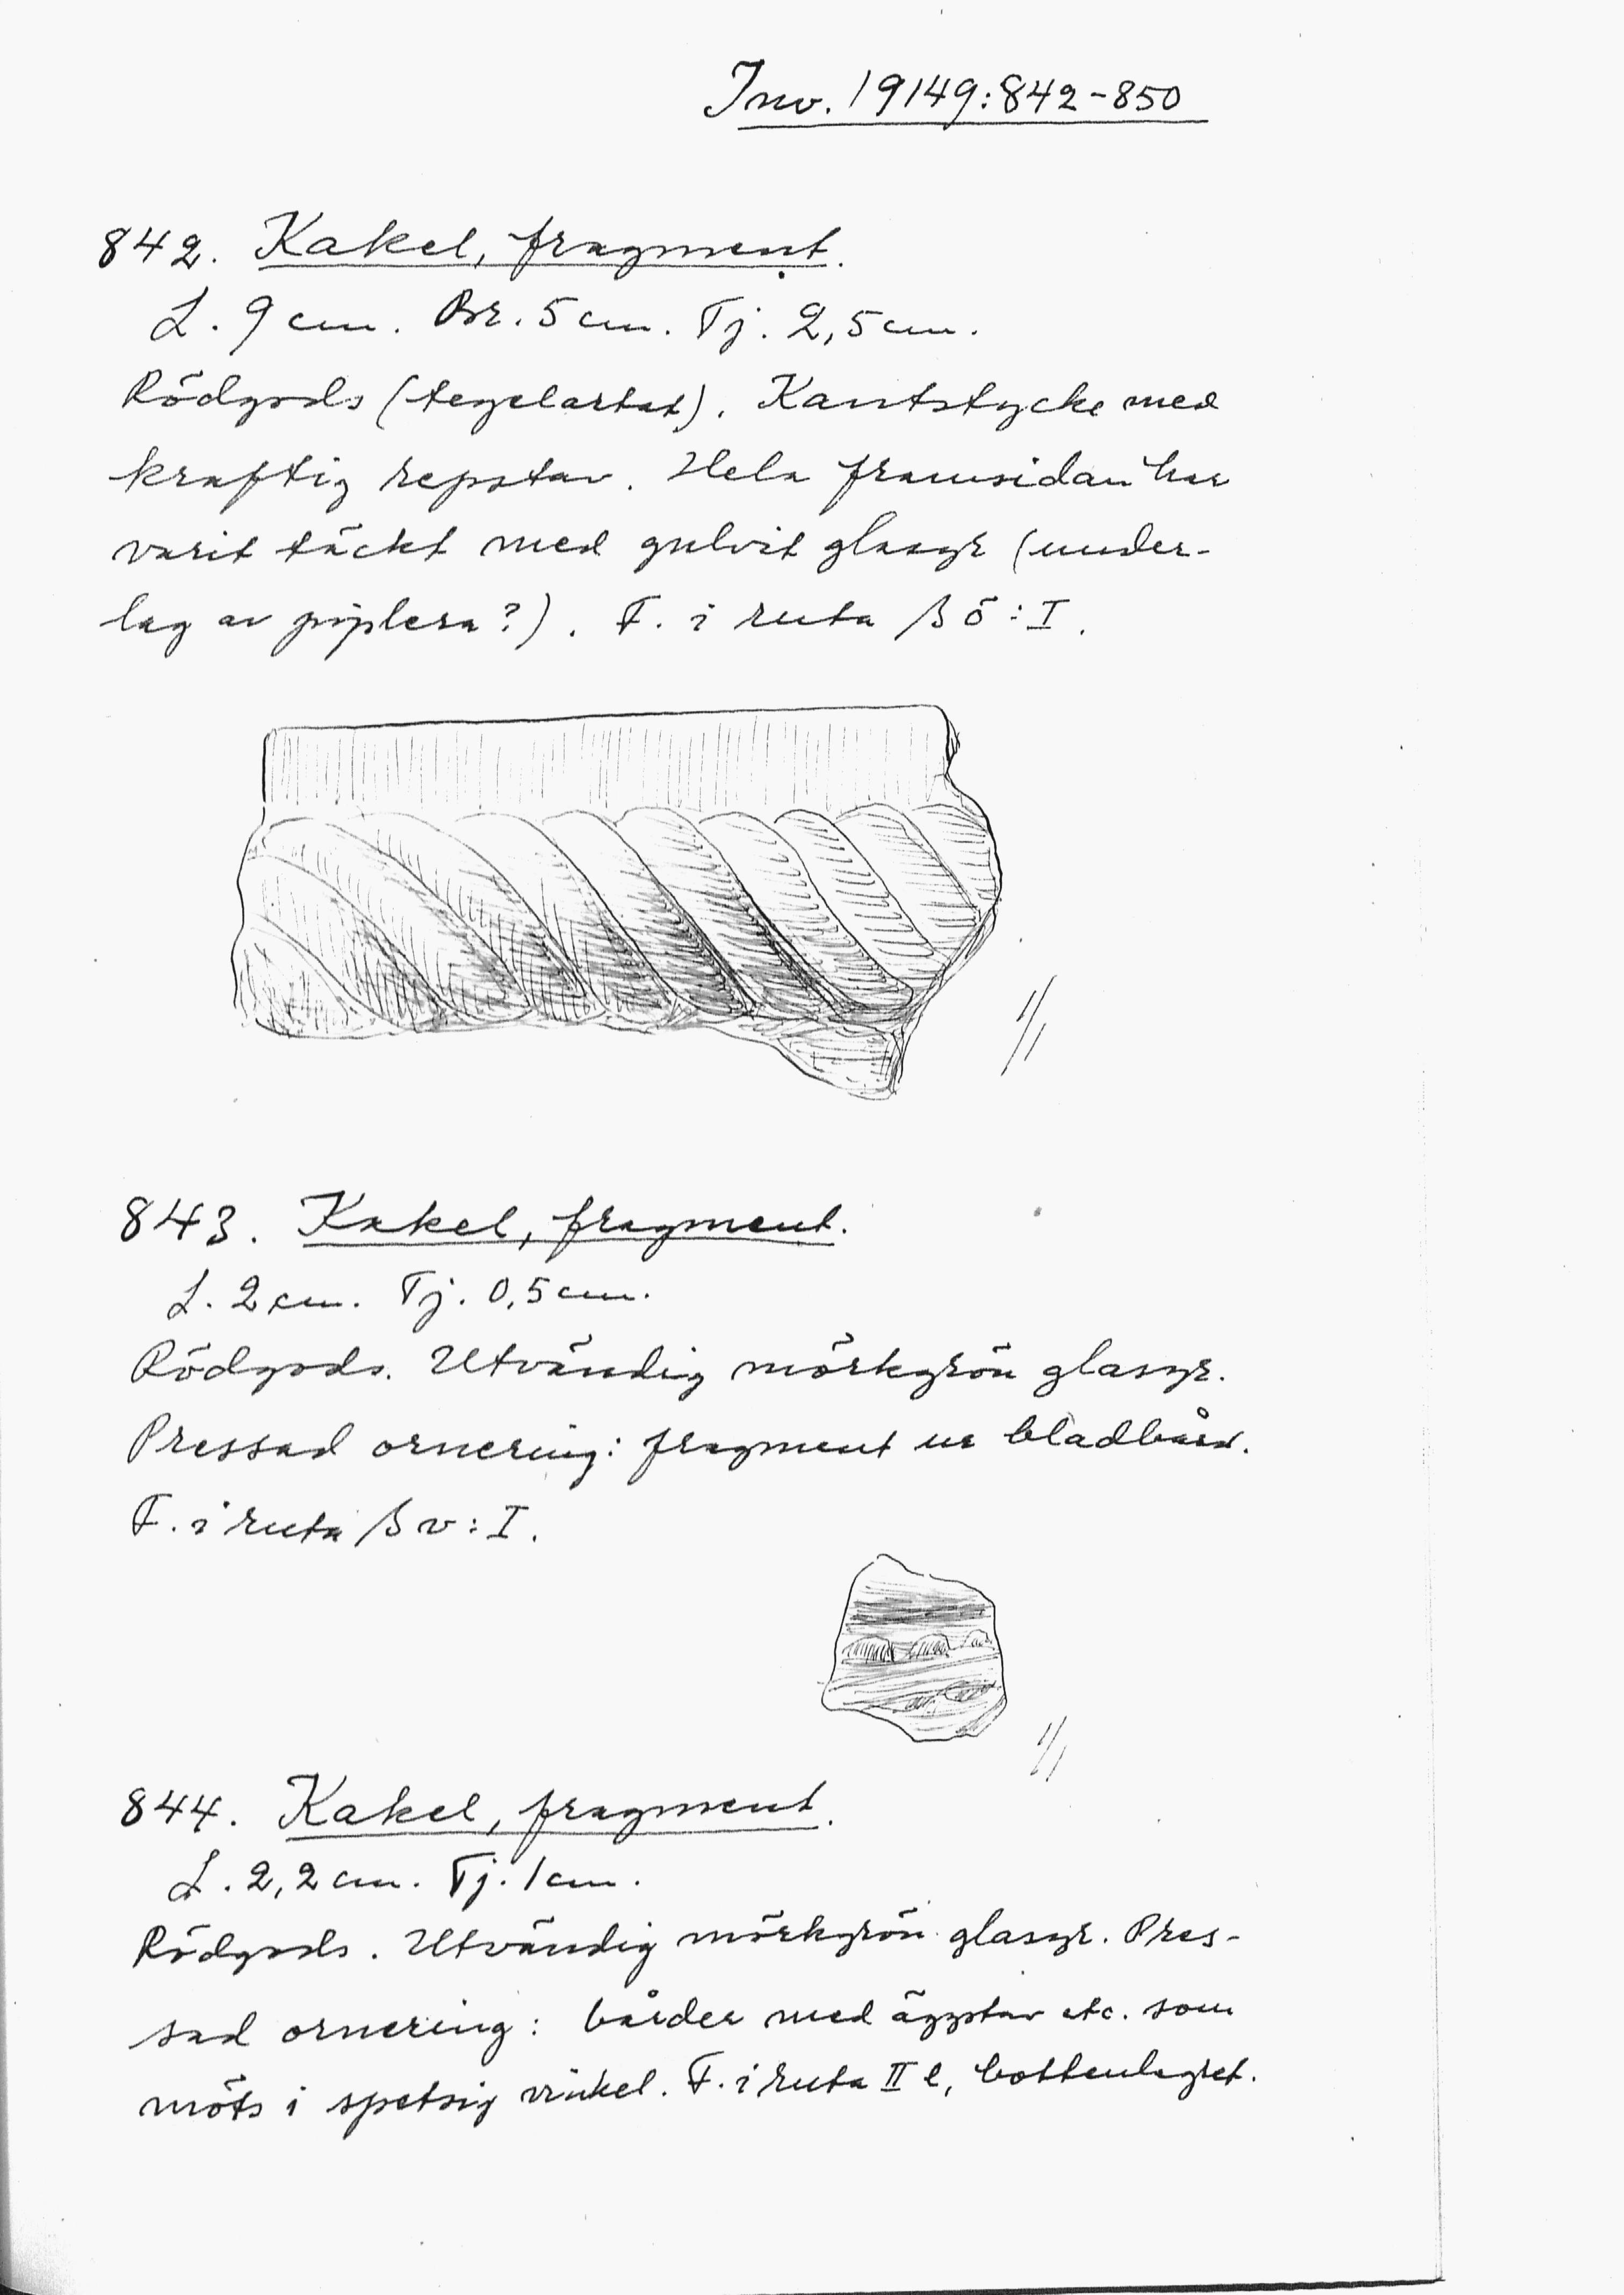 Inv. 19149:842-850
842. Kakel, fragment.
L. 9 cm. Br. 5 cm. Tj. 2,5 cm.
Rödgods (tegelartat). Kantstycke med
kraftig repstav. Hela framsidan har
varit täckt med gulvit glasyr (under-
lag av piplera?). F. i ruta β ö:I.
1/1
843. Kakel, fragment.
L. 2 cm. Tj. 0,5 cm.
Rödgods. Utvändig mörkgrön glasyr.
Pressad ornering: fragment ur bladbård.
F. i ruta β v:I.
1/1
844. Kakel, fragment.
L. 2,2 cm. Tj. 1 cm.
Rödgods. Utvändig mörkgrön glasyr. Pres-
sad ornering: bårder med äggstav etc. som
möts i spetsig vinkel. F. i ruta II l, bottenlagret.